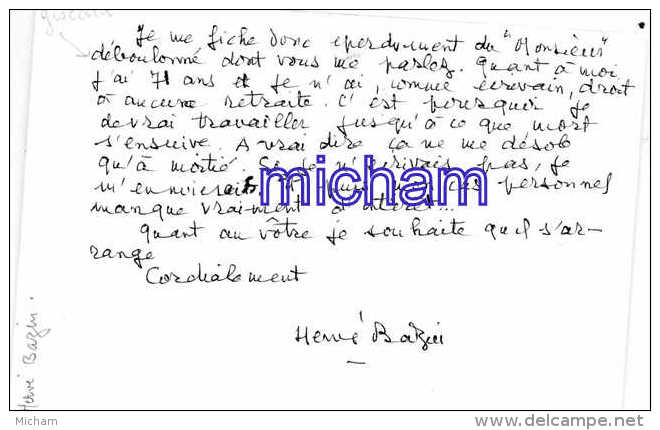 giscard
Je me fiche donc éperdument du "Monsieur"
déboulonné dont vous me parlez. Quant à moi
j'ai 71 ans et je n'ai, comme écrivain, droit
à aucune retraite. C'est pourquoi je
devrai travailler jusqu'à ce que mort
s'ensuive. A vrai dire ça ne me désole
qu'à moitié. Si je n'écrivais pas, je
m'ennuierais. Et puis mon cas personnel
manque vraiment d'intérêt...
Quant au vôtre je souhaite qu'il s'ar-
range
Cordialement
Hervé Bazin
Hervé Bazin.
micham
Micham
delcampe.net